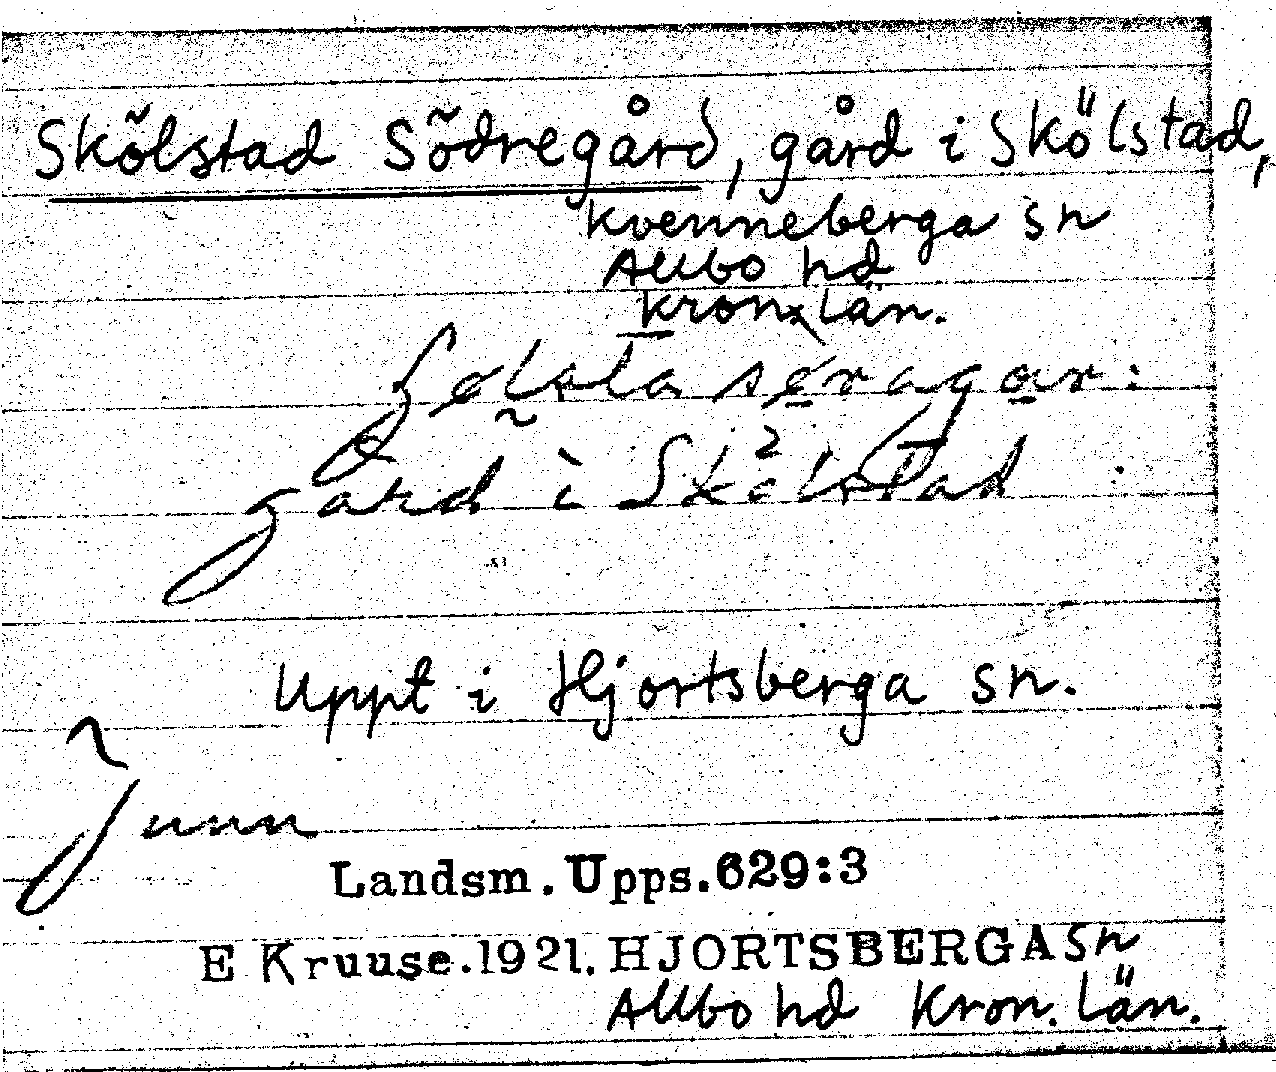 Skölstad Södregård, gård i Skölstad,
Kvenneberga sn
Allbo hd
Kron. län.
gård i Skölstad
Uppt i Hjortsberga sn.
Landsm. Upps. 629:3
E Kruuse. 1921. HJORTSBERGA sn
Allbo hd Kron. län.